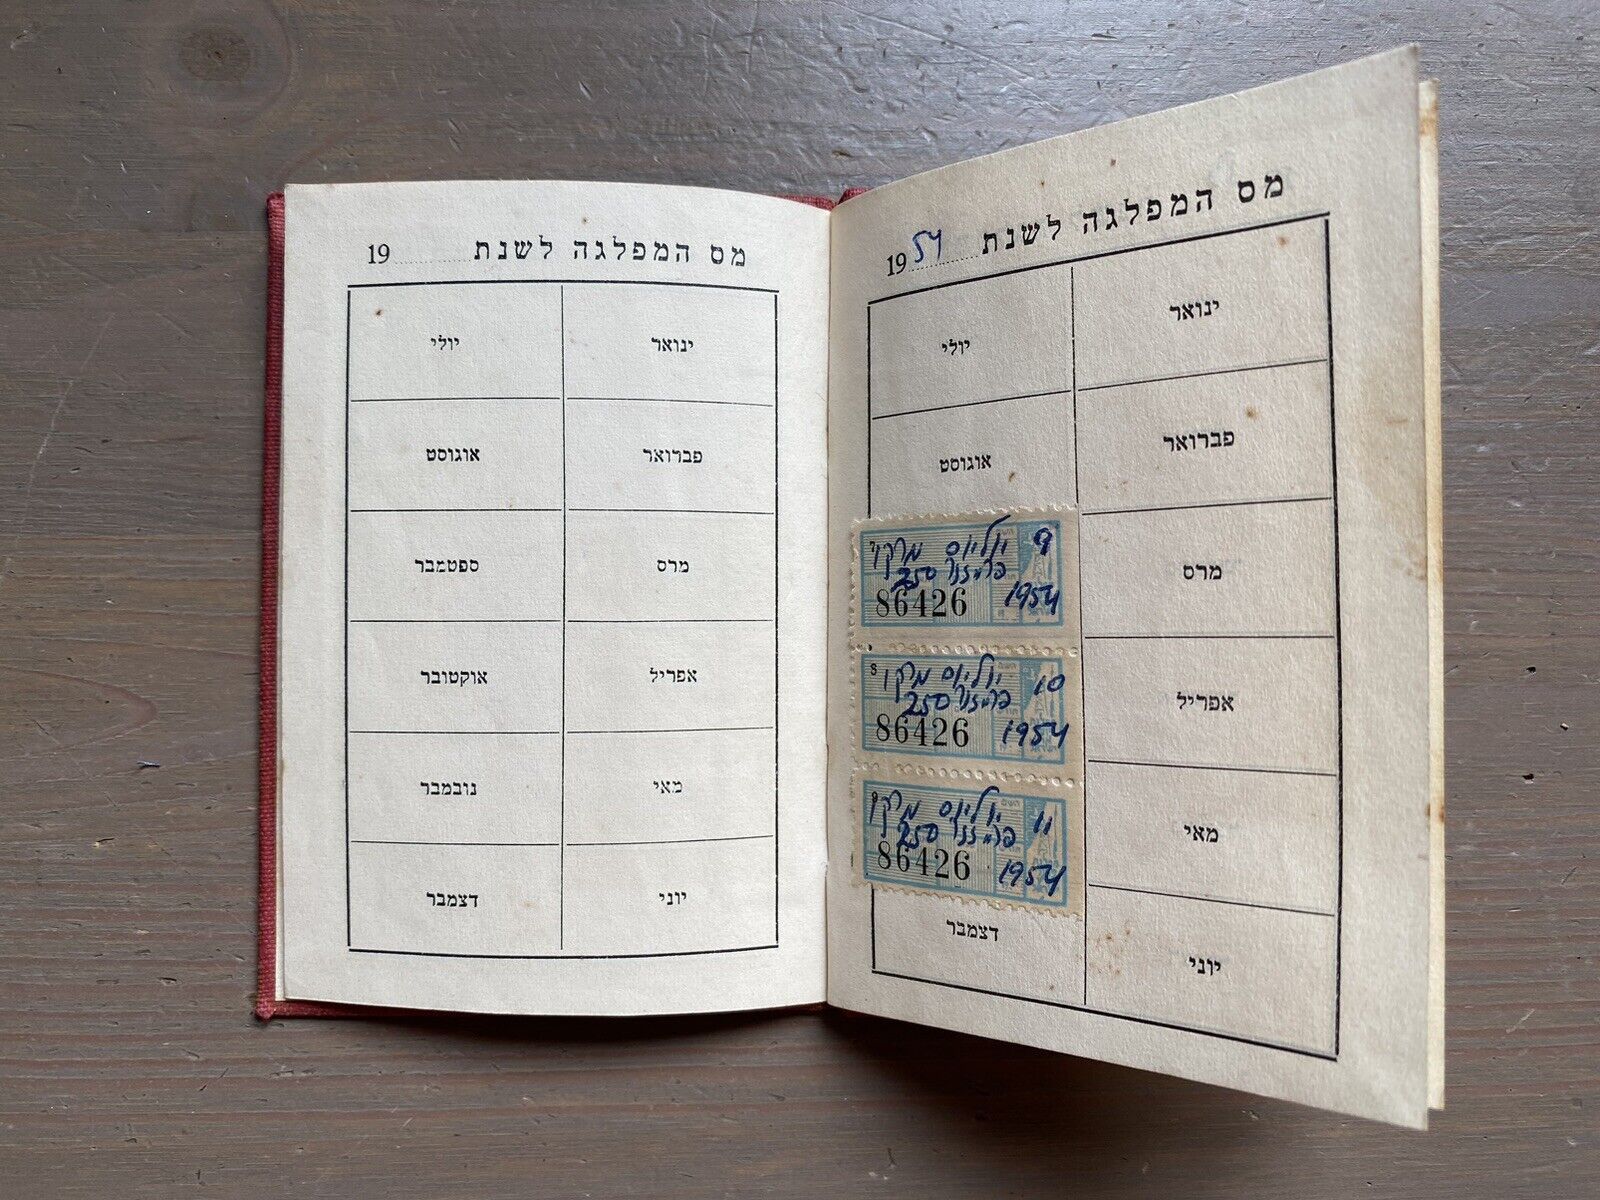 מס המפלגה לשנת 1954
ינואר
יולי
פברואר
אוגוסט
מרס
אפריל
מאי
יוני
דצמבר
7 יוליוס מרקו 9
250
86426 1954
8 יוליוס מרקו 10
250
86426 1954
9 יוליוס מרקו 11
השם
250
86426 1954
מס המפלגה לשנת 19
ינואר
יולי
פברואר
אוגוסט
מרס
ספטמבר
אפריל
אוקטובר
מאי
נובמבר
יוני
דצמבר